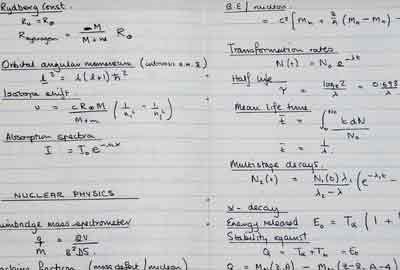 Rydberg Const.
R₀ = R∞
R_hydrogen = M / (M + m) R∞
Orbital angular momentum
l² = l(l+1)ħ²
Isotope shift.
ν = cR∞M / (M+m) (1/n₁² - 1/n₂²)
Absorption spectra
I = I₀e^-nx
NUCLEAR PHYSICS
Bainbridge mass spectrometer
q/m = 2V / B²DS
fraction (mass defect / nucleon)
B.E / nucleon
= c² [Mₙ + Z/A (M_H - Mₙ) -
Transformation rates
N(t) = N₀ e^-λt
Half life
τ = log_e 2 / λ = 0.693
Mean life time
t̄ = ∫₀^N₀ t dN / N₀
t̄ = 1/λ
Multistage decays.
N₂(t) = N₁(0) λ₁ / (λ₂ - λ₁) (e^-λ₁t -
α - decay
Energy released E₀ = Tα (1 +
Stability against
Q = Tα + T_b = E₀
Q = M_N(Z,A) - M_N(Z-2, A-4)